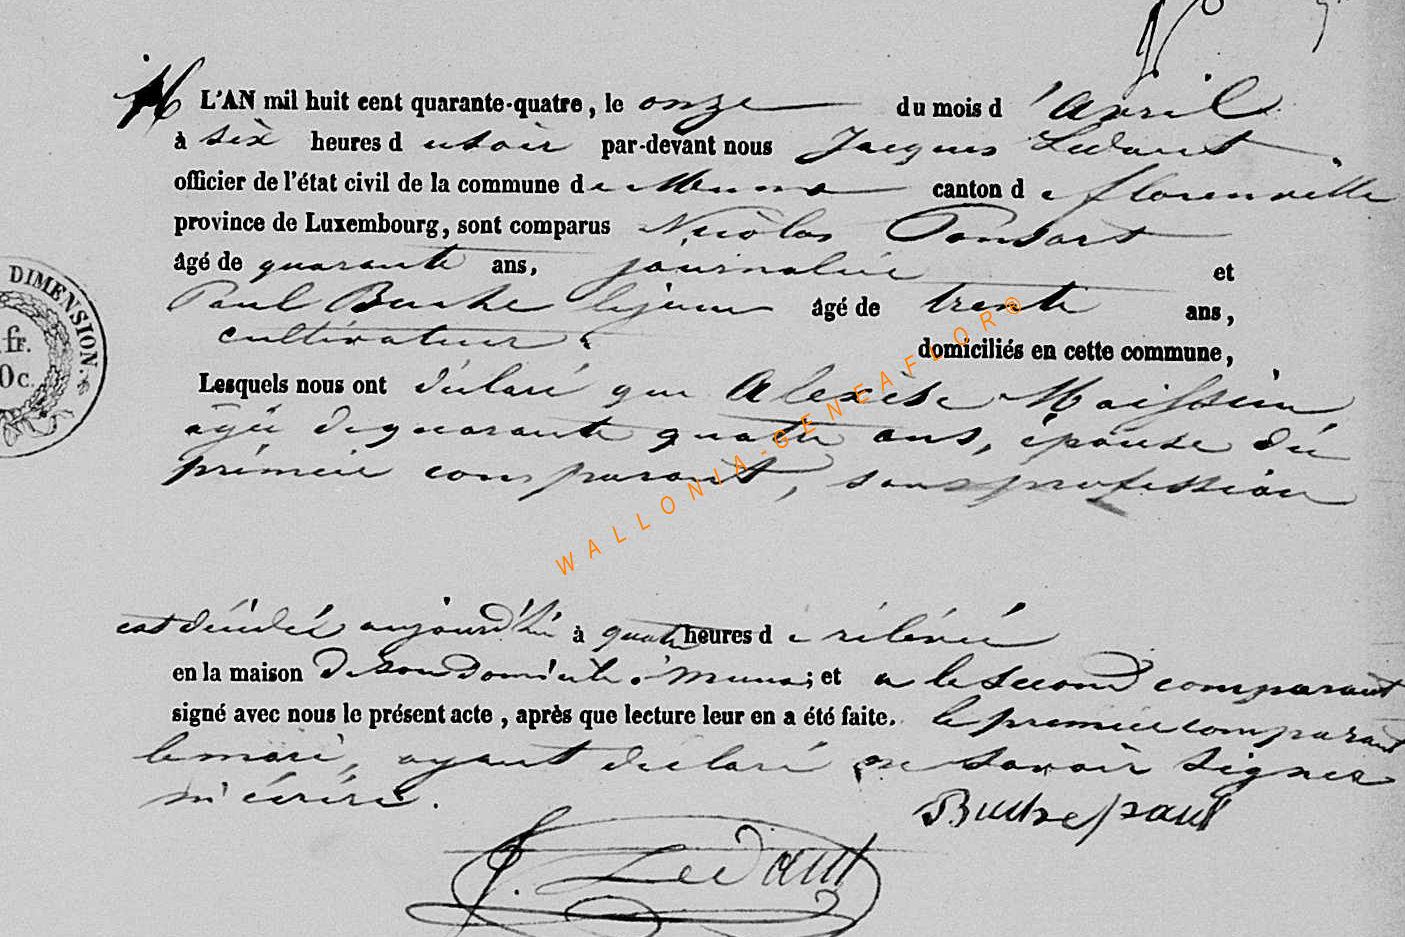 L'AN mil huit cent quarante-quatre, le onze du mois d'avril
à six heures du soir par-devant nous Jacques Ledant
officier de l'état civil de la commune de Muno canton de florenville
province de Luxembourg, sont comparus Nicolas Ponsart
âgé de quarante ans, journalier et
Paul Buche le jeune âgé de trente ans,
cultivateur
domiciliés en cette commune,
Lesquels nous ont déclaré que Alexise Maissin
agée de quarante quatre ans, épouse du
prémier comparant, sans profession
est décédée aujourd'hui à quatre heures de rélévée
en la maison de son domicile à muno; et a le second comparant
signé avec nous le présent acte, après que lecture leur en a été faite. le premier comparant
le mari, ayant déclaré ne savoir signer
ni écrire.
Buche paul
J. Ledant
DIMENSION.
fr.
0c.
WALLONIA-GENEAFLOR®